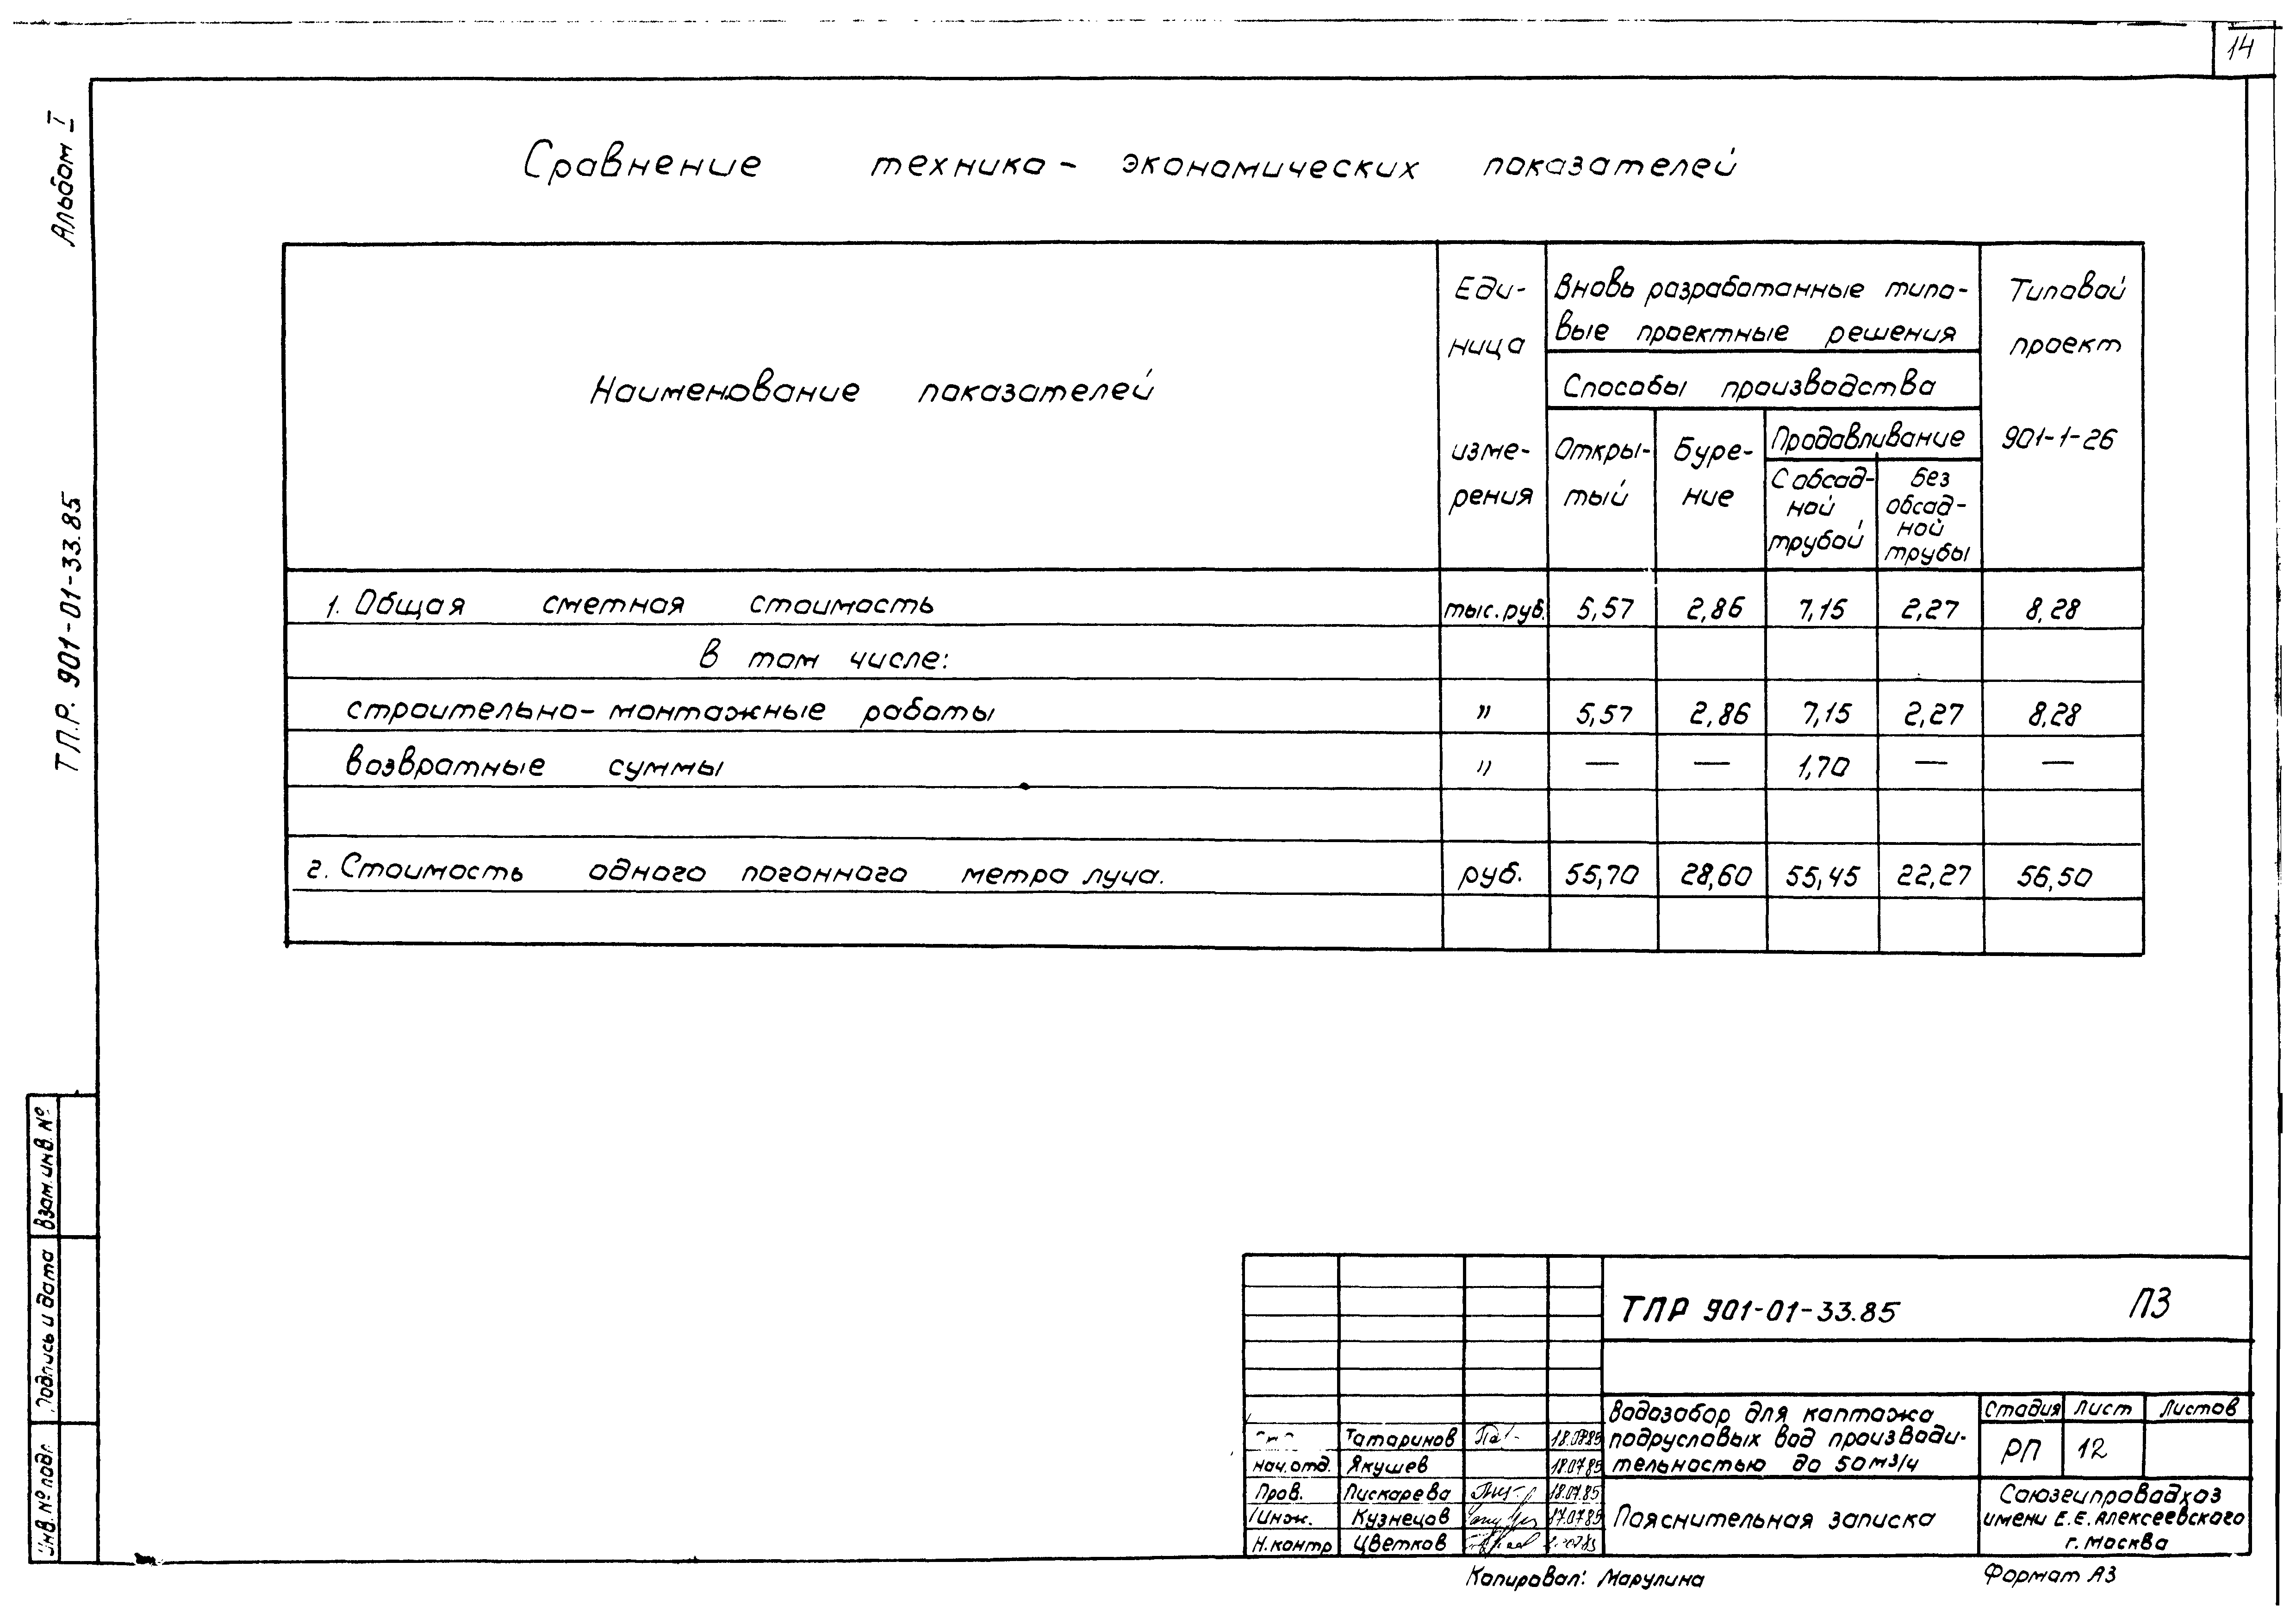 14
Альбом I
Т.П.Р. 901-01-33.85
Сравнение технико-экономических показателей
Наименование показателей
Еди-
ница
изме-
рения
Вновь разработанные типо-
вые проектные решения
Способы производства
Откры-
тый
Буре-
ние
Продавливание
С обсад-
ной
трубой
Без
обсад-
ной
трубы
Типовой
проект
901-1-26
1. Общая сметная стоимость тыс.руб. 5,57 2,86 7,15 2,27 8,28
В том числе:
строительно-монтажные работы " 5,57 2,86 7,15 2,27 8,28
возвратные суммы " — — 1,70 — —
2. Стоимость одного погонного метра луча. руб. 55,70 28,60 55,45 22,27 56,50
Взам.инв.№
Подпись и дата
Инв.№ подл.
ТПР 901-01-33.85 ПЗ
Татаринов 18.07.85
Нач.отд. Якушев 18.07.85
Пров. Пискарева 18.07.85
Инж. Кузнецов 17.07.85
Н.контр Цветков
Водозабор для каптажа
подрусловых вод производи-
тельностью до 50м3/ч
Стадия Лист Листов
РП 12
Пояснительная записка
Союзгипроводхоз
имени Е.Е.Алексеевского
г. Москва
Копировал: Марулина
Формат А3